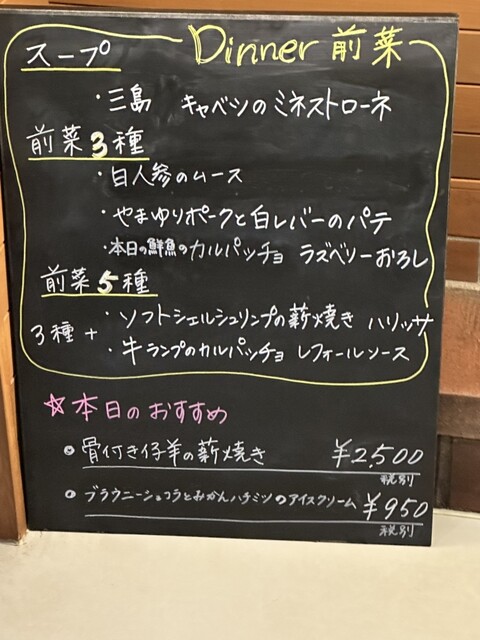 Dinner 前菜
スープ
・三島 キャベツのミネストローネ
前菜3種
・白人参のムース
・やまゆりポークと白レバーのパテ
・本日の鮮魚のカルパッチョ ラズベリーおろし
前菜5種
3種+ ・ソフトシェルシュリンプの薪焼き ハリッサ
・牛ランプのカルパッチョ レフォールソース
☆本日のおすすめ
・骨付き仔羊の薪焼き ¥2,500
税別
・ブラウニーショコラとみかんハチミツのアイスクリーム ¥950
税別